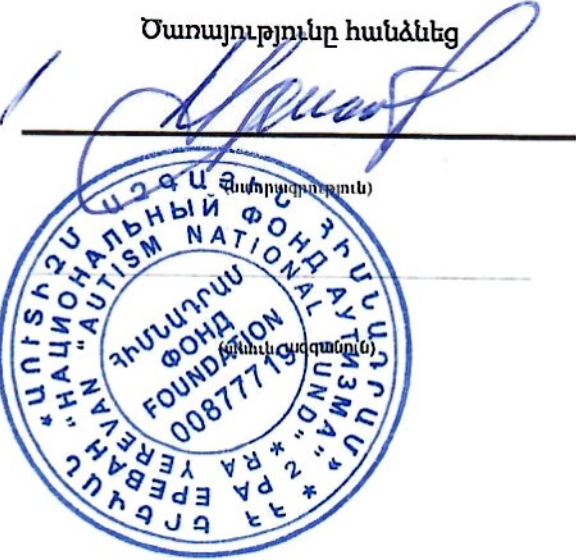 Ծառայությունը հանձնեց
(ստորագրություն)
(անուն, ազգանուն)
"ԱՈՒՏԻԶՄ ԱԶԳԱՅԻՆ ՀԻՄՆԱԴՐԱՄ"
* ՀՀ ք. ԵՐԵՎԱՆ
"НАЦИОНАЛЬНЫЙ ФОНД АУТИЗМА"
РА г. ЕРЕВАН
"AUTISM NATIONAL FUND"
* RA YEREVAN
ՀԻՄՆԱԴՐԱՄ
ФОНД
FOUNDATION
00877719